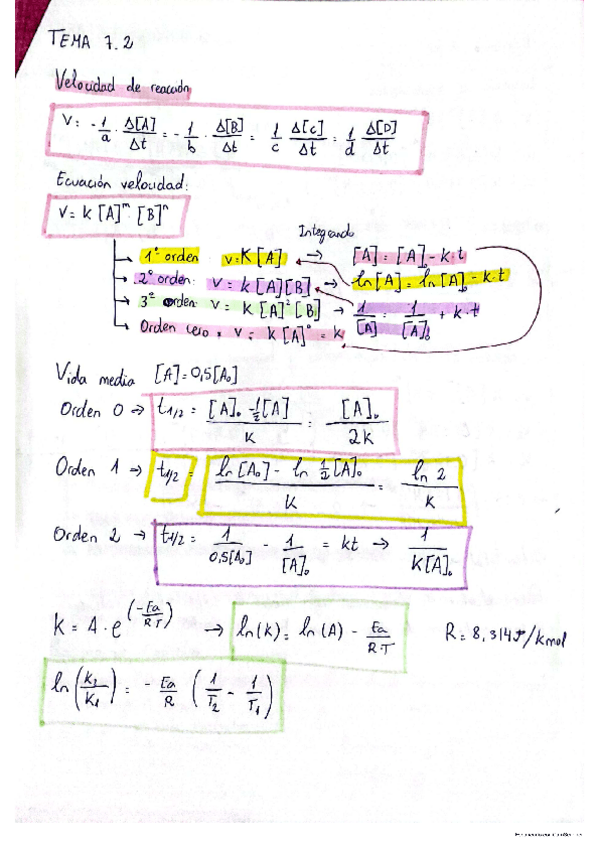 TEMA 7.2
Velocidad de reacción
V = -1/a · Δ[A]/Δt = -1/b · Δ[B]/Δt = 1/c Δ[C]/Δt = 1/d Δ[D]/Δt
Ecuación velocidad:
V = k [A]^m · [B]^n
Integrando
1º orden: v = K [A] → [A] = [A]₀ - k·t
2º orden: v = k [A][B] → ln[A] = ln[A]₀ - k·t
3º orden: v = K [A]² [B] → 1/[A] = 1/[A]₀ + k·t
Orden cero, v = k[A]⁰ = k
Vida media [A] = 0,5[A₀]
Orden 0 → t1/2 = [A]₀ - 1/2[A] / K = [A]₀ / 2K
Orden 1 → t1/2 = ln[A₀] - ln 1/2[A]₀ / K = ln 2 / K
Orden 2 → t1/2 = 1/0,5[A₀] - 1/[A]₀ = kt → 1/K[A]₀
K = A · e^(-Ea/RT) → ln(k) = ln(A) - Ea/R·T R = 8,314 J/kmol
ln(K₂/K₁) = - Ea/R (1/T₂ - 1/T₁)